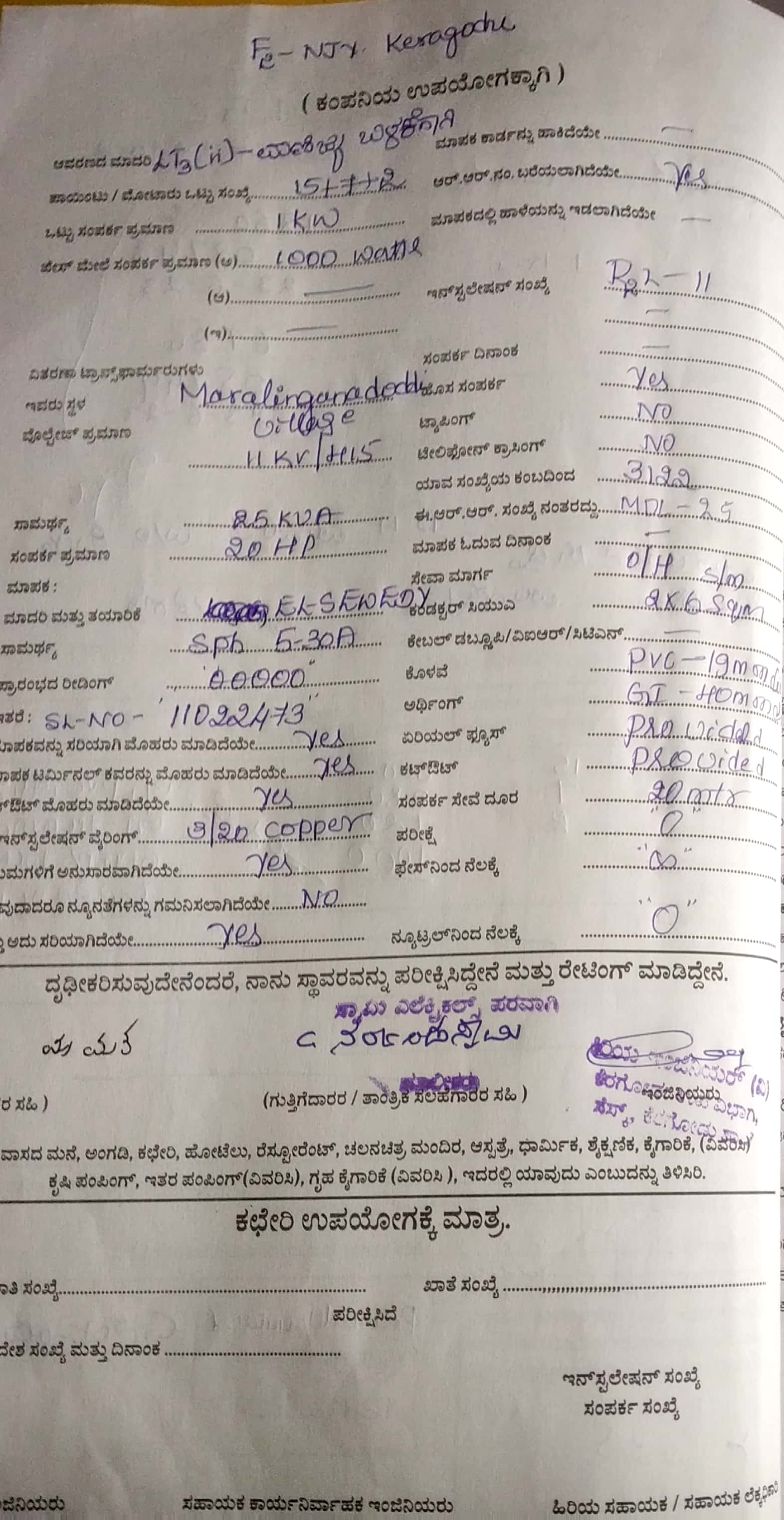 F2 - NJY. Keragodu
( ಕಂಪನಿಯ ಉಪಯೋಗಕ್ಕಾಗಿ )
ಆವರಣದ ಮಾದರಿ LT3(ii) - ವಾಣಿಜ್ಯ ಬಳಕೆಗಾಗಿ ಮಾಪಕ ಕಾರ್ಡನ್ನು ಹಾಕಿದೆಯೇ
ಪಾಯಿಂಟು / ಮೋಟಾರು ಒಟ್ಟು ಸಂಖ್ಯೆ 15+7+2 ಆರ್.ಆರ್.ನಂ. ಬರೆಯಲಾಗಿದೆಯೇ yes
ಒಟ್ಟು ಸಂಪರ್ಕ ಪ್ರಮಾಣ 1 KW ಮಾಪಕದಲ್ಲಿ ಹಾಳೆಯನ್ನು ಇಡಲಾಗಿದೆಯೇ —
ಫೇಸ್ ಮೇಲೆ ಸಂಪರ್ಕ ಪ್ರಮಾಣ (ಅ) 1000 watts
(ಆ) — ಇನ್‌ಸ್ಟಲೇಷನ್ ಸಂಖ್ಯೆ
(ಇ) —
ಸಂಪರ್ಕ ದಿನಾಂಕ —
ವಿತರಣಾ ಟ್ರಾನ್ಸ್‌ಫಾರ್ಮರುಗಳು
ಇವರು ಸ್ಥಳ Maralinganadoddi ಹೊಸ ಸಂಪರ್ಕ Yes
village ಟ್ಯಾಪಿಂಗ್ NO
ವೊಲ್ಟೇಜ್ ಪ್ರಮಾಣ 11 KV/415 ಟೆಲಿಫೋನ್ ಕ್ರಾಸಿಂಗ್ NO
ಯಾವ ಸಂಖ್ಯೆಯ ಕಂಬದಿಂದ 3122
ಸಾಮರ್ಥ್ಯ 25 KVA ಈ.ಆರ್.ಆರ್. ಸಂಖ್ಯೆ ನಂತರದ್ದು MDL-25
ಸಂಪರ್ಕ ಪ್ರಮಾಣ 20 HP ಮಾಪಕ ಓದುವ ದಿನಾಂಕ —
ಮಾಪಕ : ಸೇವಾ ಮಾರ್ಗ O/H S/m
ಮಾದರಿ ಮತ್ತು ತಯಾರಿಕೆ ELSEWEDY ಕಂಡಕ್ಟರ್ ಸಿಯುಎ 2x6 Sqm
ಸಾಮರ್ಥ್ಯ Sph 5-30A ಕೇಬಲ್ ಡಬ್ಲೂಪಿ/ವಿಐಆರ್/ಸಿಟಿಎಸ್ —
ಪ್ರಾರಂಭದ ರೀಡಿಂಗ್ "00000" ಕೊಳವೆ PVC-19mm
ಇತರೆ : SL-NO- "11022473" ಅರ್ಥಿಂಗ್ GI-40mm
ಮಾಪಕವನ್ನು ಸರಿಯಾಗಿ ಮೊಹರು ಮಾಡಿದೆಯೇ yes ಏರಿಯಲ್ ಫ್ಯೂಸ್ provided
ಮಾಪಕ ಟರ್ಮಿನಲ್ ಕವರನ್ನು ಮೊಹರು ಮಾಡಿದೆಯೇ yes ಕಟ್‌ಔಟ್ provided
ಕಟ್‌ಔಟ್ ಮೊಹರು ಮಾಡಿದೆಯೇ yes ಸಂಪರ್ಕ ಸೇವೆ ದೂರ 20 mtr
ಇನ್‌ಸ್ಟಲೇಷನ್ ವೈರಿಂಗ್ 3/20 copper ಪರೀಕ್ಷೆ "0"
ಯಮಗಳಿಗೆ ಅನುಸಾರವಾಗಿದೆಯೇ yes ಫೇಸ್‌ನಿಂದ ನೆಲಕ್ಕೆ "∞"
ವುದಾದರೂ ನ್ಯೂನತೆಗಳನ್ನು ಗಮನಿಸಲಾಗಿದೆಯೇ NO
ಅದು ಸರಿಯಾಗಿದೆಯೇ yes ನ್ಯೂಟ್ರಲ್‌ನಿಂದ ನೆಲಕ್ಕೆ "0"
ದೃಢೀಕರಿಸುವುದೇನೆಂದರೆ, ನಾನು ಸ್ಥಾವರವನ್ನು ಪರೀಕ್ಷಿಸಿದ್ದೇನೆ ಮತ್ತು ರೇಟಿಂಗ್ ಮಾಡಿದ್ದೇನೆ.
ಸ್ವಾಮಿ ಎಲೆಕ್ಟ್ರಿಕಲ್ಸ್ ಪರವಾಗಿ
ರ ಸಹಿ ) (ಗುತ್ತಿಗೆದಾರರ / ತಾಂತ್ರಿಕ ಸಲಹಗಾರರ ಸಹಿ ) ಇಂಜಿನಿಯರು
ವಾಸದ ಮನೆ, ಅಂಗಡಿ, ಕಛೇರಿ, ಹೋಟೆಲು, ರೆಸ್ಟೋರೆಂಟ್, ಚಲನಚಿತ್ರ ಮಂದಿರ, ಆಸ್ಪತ್ರೆ, ಧಾರ್ಮಿಕ, ಶೈಕ್ಷಣಿಕ, ಕೈಗಾರಿಕೆ, (ವಿವರಿಸಿ)
ಕೃಷಿ ಪಂಪಿಂಗ್, ಇತರ ಪಂಪಿಂಗ್(ವಿವರಿಸಿ), ಗೃಹ ಕೈಗಾರಿಕೆ (ವಿವರಿಸಿ ), ಇದರಲ್ಲಿ ಯಾವುದು ಎಂಬುದನ್ನು ತಿಳಿಸಿರಿ.
ಕಛೇರಿ ಉಪಯೋಗಕ್ಕೆ ಮಾತ್ರ.
ಾತಿ ಸಂಖ್ಯೆ ಖಾತೆ ಸಂಖ್ಯೆ
ಪರೀಕ್ಷಿಸಿದೆ
ದೇಶ ಸಂಖ್ಯೆ ಮತ್ತು ದಿನಾಂಕ
ಇನ್‌ಸ್ಟಲೇಷನ್ ಸಂಖ್ಯೆ
ಸಂಪರ್ಕ ಸಂಖ್ಯೆ
ಜಿನಿಯರು ಸಹಾಯಕ ಕಾರ್ಯನಿರ್ವಾಹಕ ಇಂಜಿನಿಯರು ಹಿರಿಯ ಸಹಾಯಕ / ಸಹಾಯಕ ಲೆಕ್ಕಾಧಿಕಾರಿ